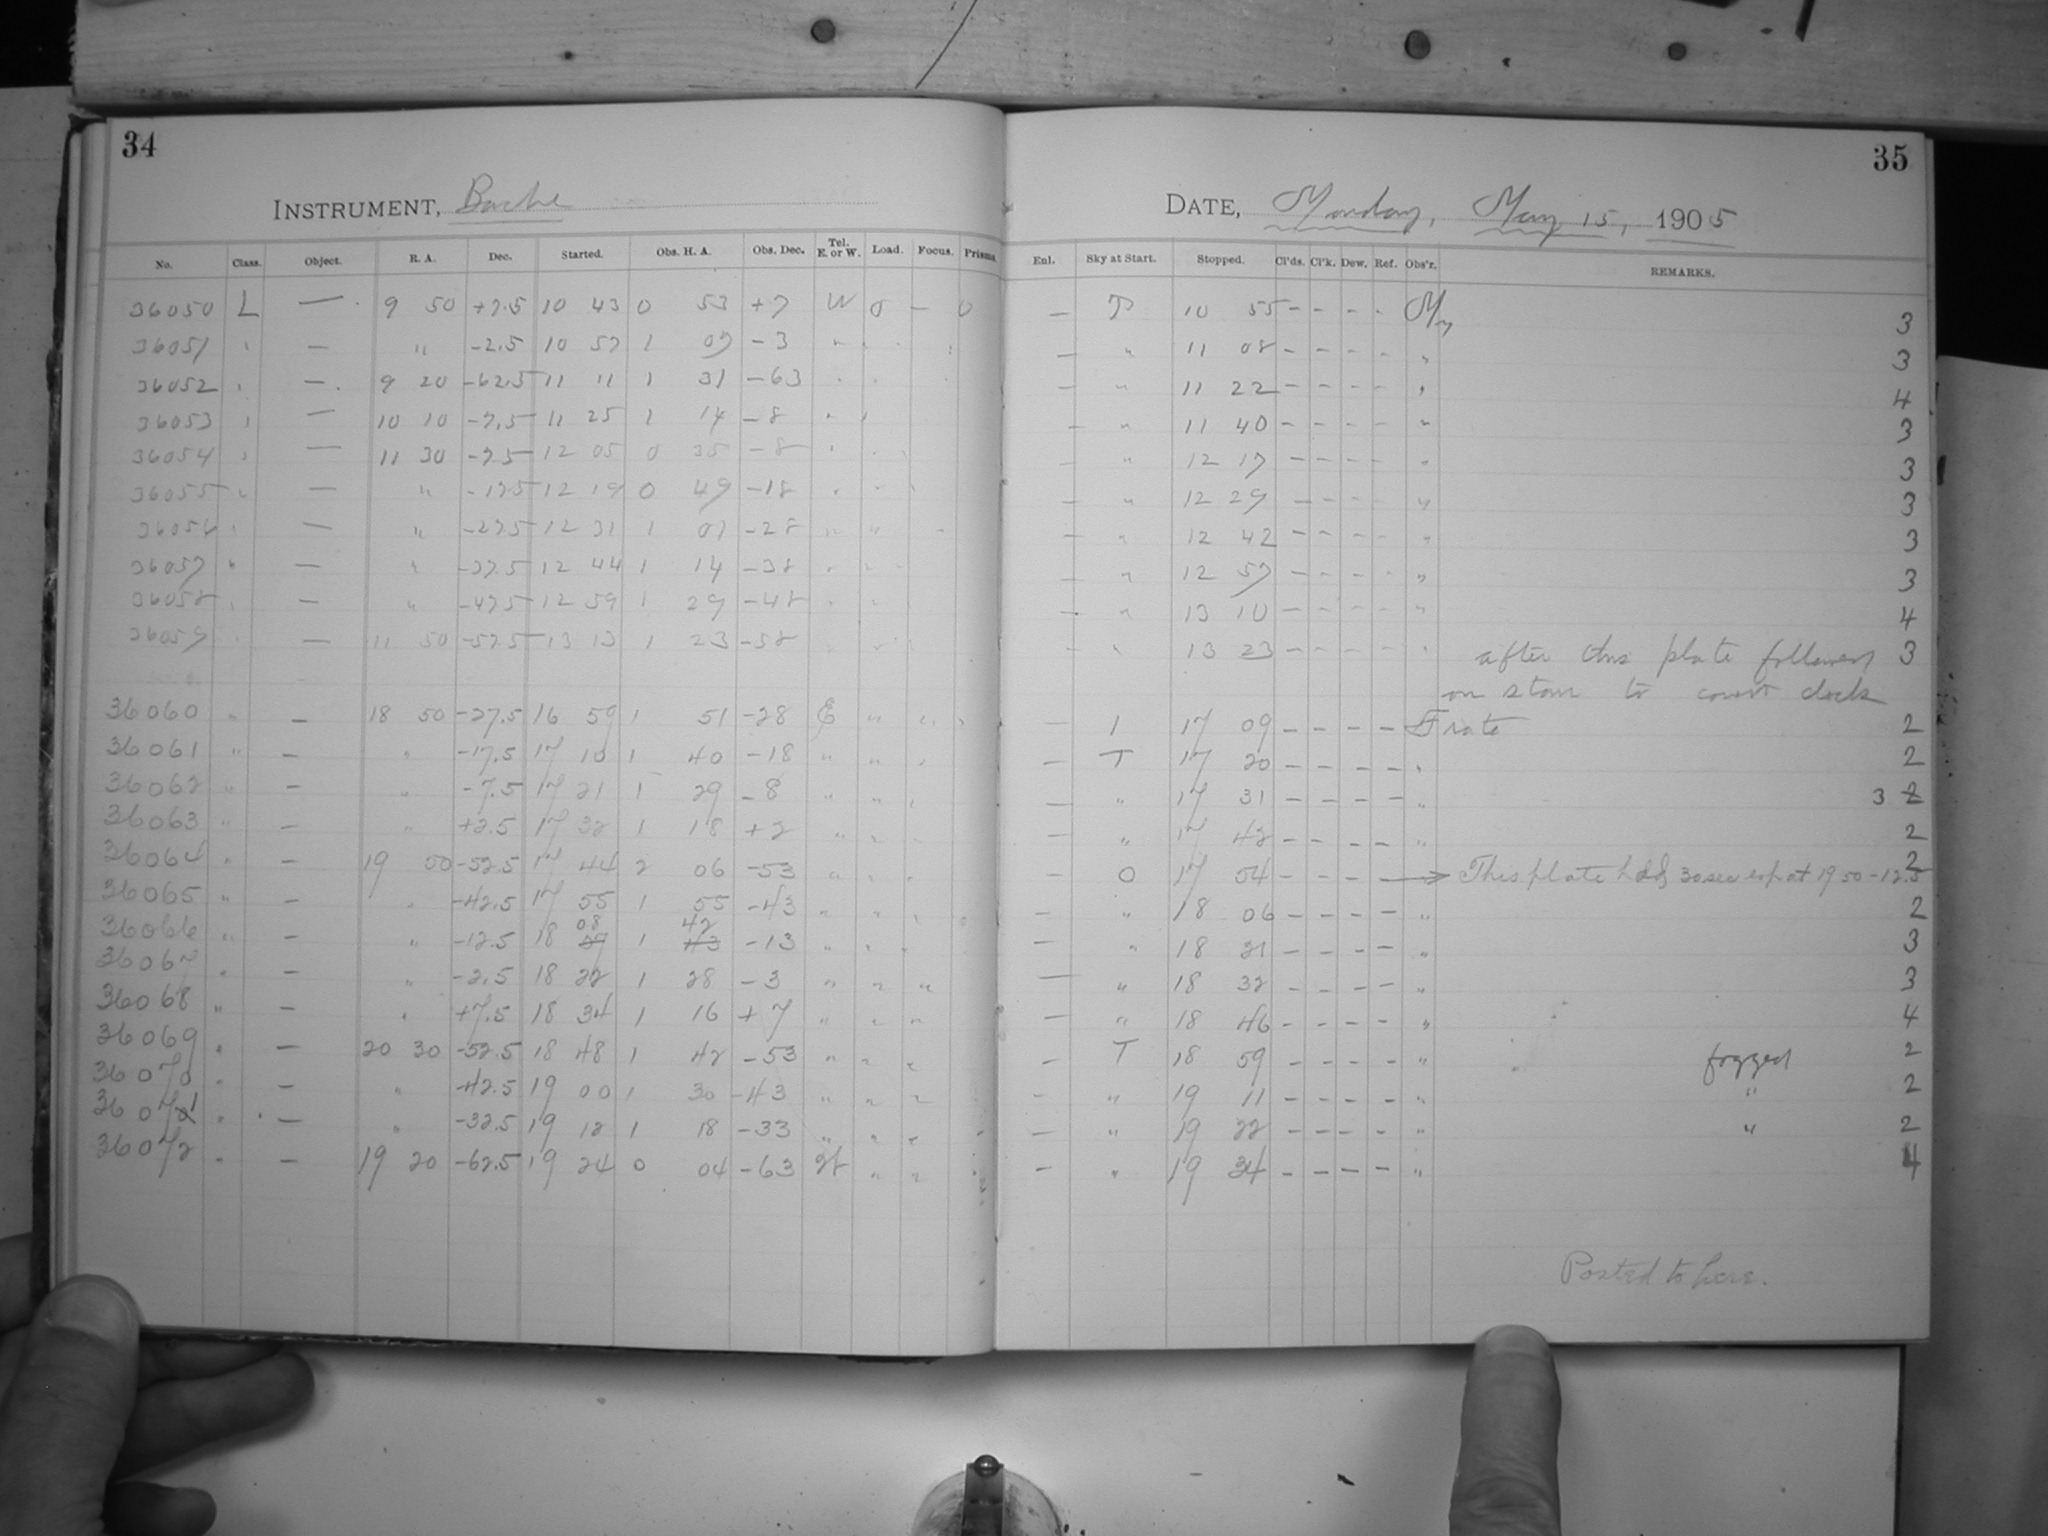 34
INSTRUMENT, Bache
No. Class. Object. R. A. Dec. Started. Obs. H. A. Obs. Dec. Tel. E. or W. Load. Focus. Prisms.
36050 L — 9 50 +7.5 10 43 0 53 +7 W 0 — 0
36051 " — " -2.5 10 57 1 07 -3 " "
36052 " — 9 20 -62.5 11 11 1 31 -63 " "
36053 " — 10 10 -7.5 11 25 1 14 -8 " "
36054 " — 11 30 -7.5 12 05 0 35 -8 " "
36055 " — " -17.5 12 19 0 49 -18 " " "
36056 " — " -27.5 12 31 1 01 -28 " " -
36057 " — " -37.5 12 44 1 14 -38 " "
36058 " — " -47.5 12 59 1 29 -48 " "
36059 " — 11 50 -57.5 13 13 1 23 -58 " "
36060 " — 18 50 -27.5 16 59 1 51 -28 E " " "
36061 " — " -17.5 17 10 1 40 -18 " " "
36062 " — " -7.5 17 21 1 29 -8 " " "
36063 " — " +2.5 17 32 1 18 +2 " "
36064 " — 19 50 -52.5 17 44 2 06 -53 " " "
36065 " — " -42.5 17 55 1 55 -43 " " "
36066 " — " -12.5 18 07 08 1 43 42 -13 " " "
36067 " — " -2.5 18 22 1 28 -3 " " "
36068 " — " +7.5 18 34 1 16 +7 " " "
36069 " — 20 30 -52.5 18 48 1 42 -53 " " "
36070 " — " -42.5 19 00 1 30 -43 " " "
36071 " — " -32.5 19 12 1 18 -33 " " "
36072 " — 19 20 -62.5 19 24 0 04 -63 W " "
35
DATE, Monday, May 15, 1905
Enl. Sky at Start. Stopped. Cl'ds. Cl'k. Dew. Ref. Obs'r. REMARKS.
— T 10 55 - - - - My 3
— " 11 08 - - - - " 3
— " 11 22 - - - - " 4
— " 11 40 - - - - " 3
— " 12 17 - - - - " 3
— " 12 29 - - - - " 3
— " 12 42 - - - - " 3
— " 12 57 - - - - " 3
— " 13 10 - - - - " 4
— " 13 23 - - - - " after this plate followed 3
on star to count clock
— 1 17 09 - - - - F rate 2
— T 17 20 - - - - " 2
— " 17 31 - - - - " 3 2
— " 17 42 - - - - " 2
— 0 17 54 - - - → This plate had 30 sec exp at 19 50 -12.5 2
— " 18 06 - - - - " 2
— " 18 21 - - - - " 3
— " 18 32 - - - - " 3
— " 18 46 - - - - " 4
— T 18 59 - - - - " fogged 2
— " 19 11 - - - - " " 2
— " 19 22 - - - - " " 2
— " 19 34 - - - - " 4
Posted to here.